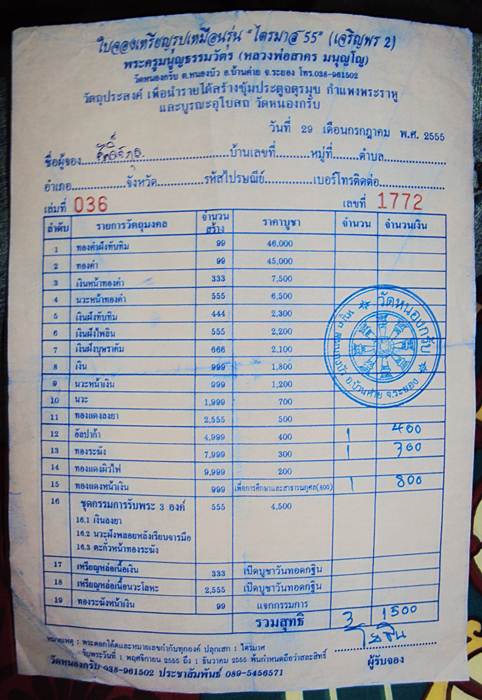 ใบจองเหรียญรูปเหมือนรุ่น "ไตรมาส 55" (เจริญพร 2)
พระครูมนูญธรรมวัตร (หลวงพ่อสาคร มนุญฺโญ)
วัดหนองกรับ ต.หนองบัว อ.บ้านค่าย จ.ระยอง โทร.038-961502
วัตถุประสงค์ เพื่อนำรายได้สร้างซุ้มประตูจตุรมุข กำแพงพระราหู
และบูรณะอุโบสถ วัดหนองกรับ
วันที่ 29 เดือนกรกฎาคม พ.ศ. 2555
ชื่อผู้จอง บ้านเลขที่ หมู่ที่ ตำบล
อำเภอ จังหวัด รหัสไปรษณีย์ เบอร์โทรติดต่อ
เล่มที่ 036 เลขที่ 1772
ลำดับ รายการวัตถุมงคล จำนวนสร้าง ราคาบูชา จำนวน จำนวนเงิน
1 ทองคำฝังทับทิม 99 46,000
2 ทองคำ 99 45,000
3 เงินหน้าทองคำ 333 7,500
4 นวะหน้าทองคำ 555 6,500
5 เงินฝังทับทิม 444 2,300
6 เงินฝังไพลิน 555 2,200
7 เงินฝังบุษราคัม 666 2,100
8 เงิน 999 1,800
9 นวะหน้าเงิน 999 1,200
10 นวะ 1,999 700
11 ทองแดงลงยา 2,555 500
12 อัลปาก้า 4,999 400 1 400
13 ทองระฆัง 7,999 300 1 300
14 ทองแดงผิวไฟ 9,999 200
15 ทองแดงหน้าเงิน 999 เพื่อการศึกษาและสาธารณกุศล(800) 1 800
16 ชุดกรรมการรับพระ 3 องค์ 555 4,500
16.1 เงินลงยา
16.2 นวะฝังพลอยหลังเรียบจารมือ
16.3 ตะกั่วหน้าทองระฆัง
17 เหรียญหล่อเนื้อเงิน 333 เปิดบูชาวันทอดกฐิน
18 เหรียญหล่อเนื้อนวะโลหะ 2,555 เปิดบูชาวันทอดกฐิน
19 ทองระฆังหน้าเงิน 99 แจกกรรมการ
รวมสุทธิ 3 1500
หมายเหตุ : พระตอกโค้ดและหมายเลขกำกับทุกองค์ ปลุกเสก : ไตรมาส
รับพระวันที่ : พฤศจิกายน 2555 ถึง 1 ธันวาคม 2555 พ้นกำหนดถือว่าสละสิทธิ์
วัดหนองกรับ 038-961502 ประชาสัมพันธ์ 089-5456571 ผู้รับจอง
วัดหนองกรับ
อ.บ้านค่าย จ.ระยอง